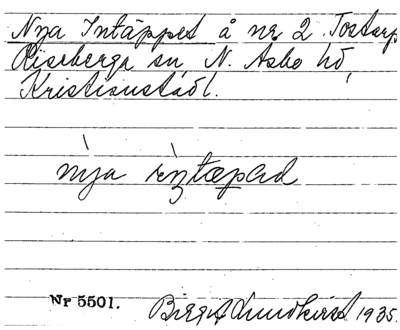 Nya Intäppet å nr 2 Tostarp
Riseberga sn, N. Asbo hd,
Kristianstad l.
nya intæpad
Nr 5501.
Birgit Lundkvist 1935.